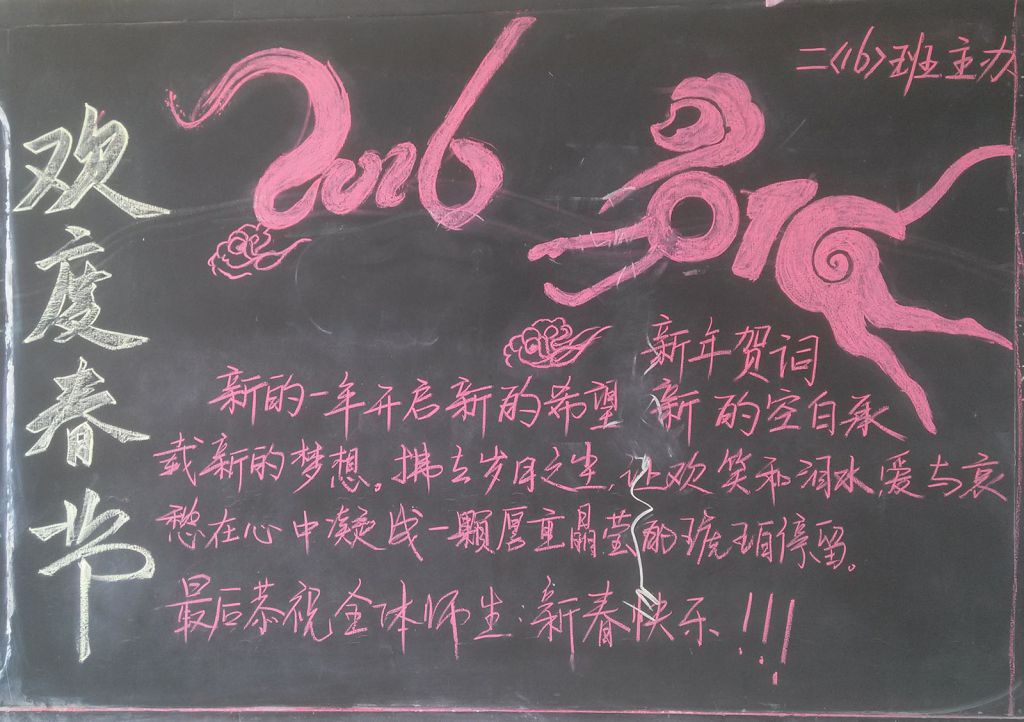 二<16>班主办
2016
2016
欢度春节
新年贺词
新的一年开启新的希望 新的空白承
载新的梦想。拂去岁月之尘,让欢笑和泪水,爱与哀
愁在心中凝成一颗厚重晶莹的琥珀停留。
最后恭祝全体师生:新春快乐!!!